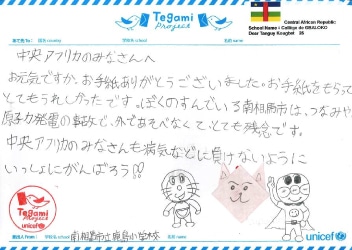 Tegami
Project
Central African Republic
School Name : Collège de GBALOKO
Dear Tanguy Koagbet 26
中央アフリカのみなさんへ
お元気ですか。お手紙ありがとうございました。お手紙をもらって
とてもうれしかったです。ぼくのすんでいる南相馬市は、つなみや
原子力発電の事故で、外であそべなくて、とても残念です。
中央アフリカのみなさんも病気などに負けないように
いっしょにがんばろう!!
Tegami
Project
unicef
差出人 From:
南相馬市立鹿島小学校
unicef